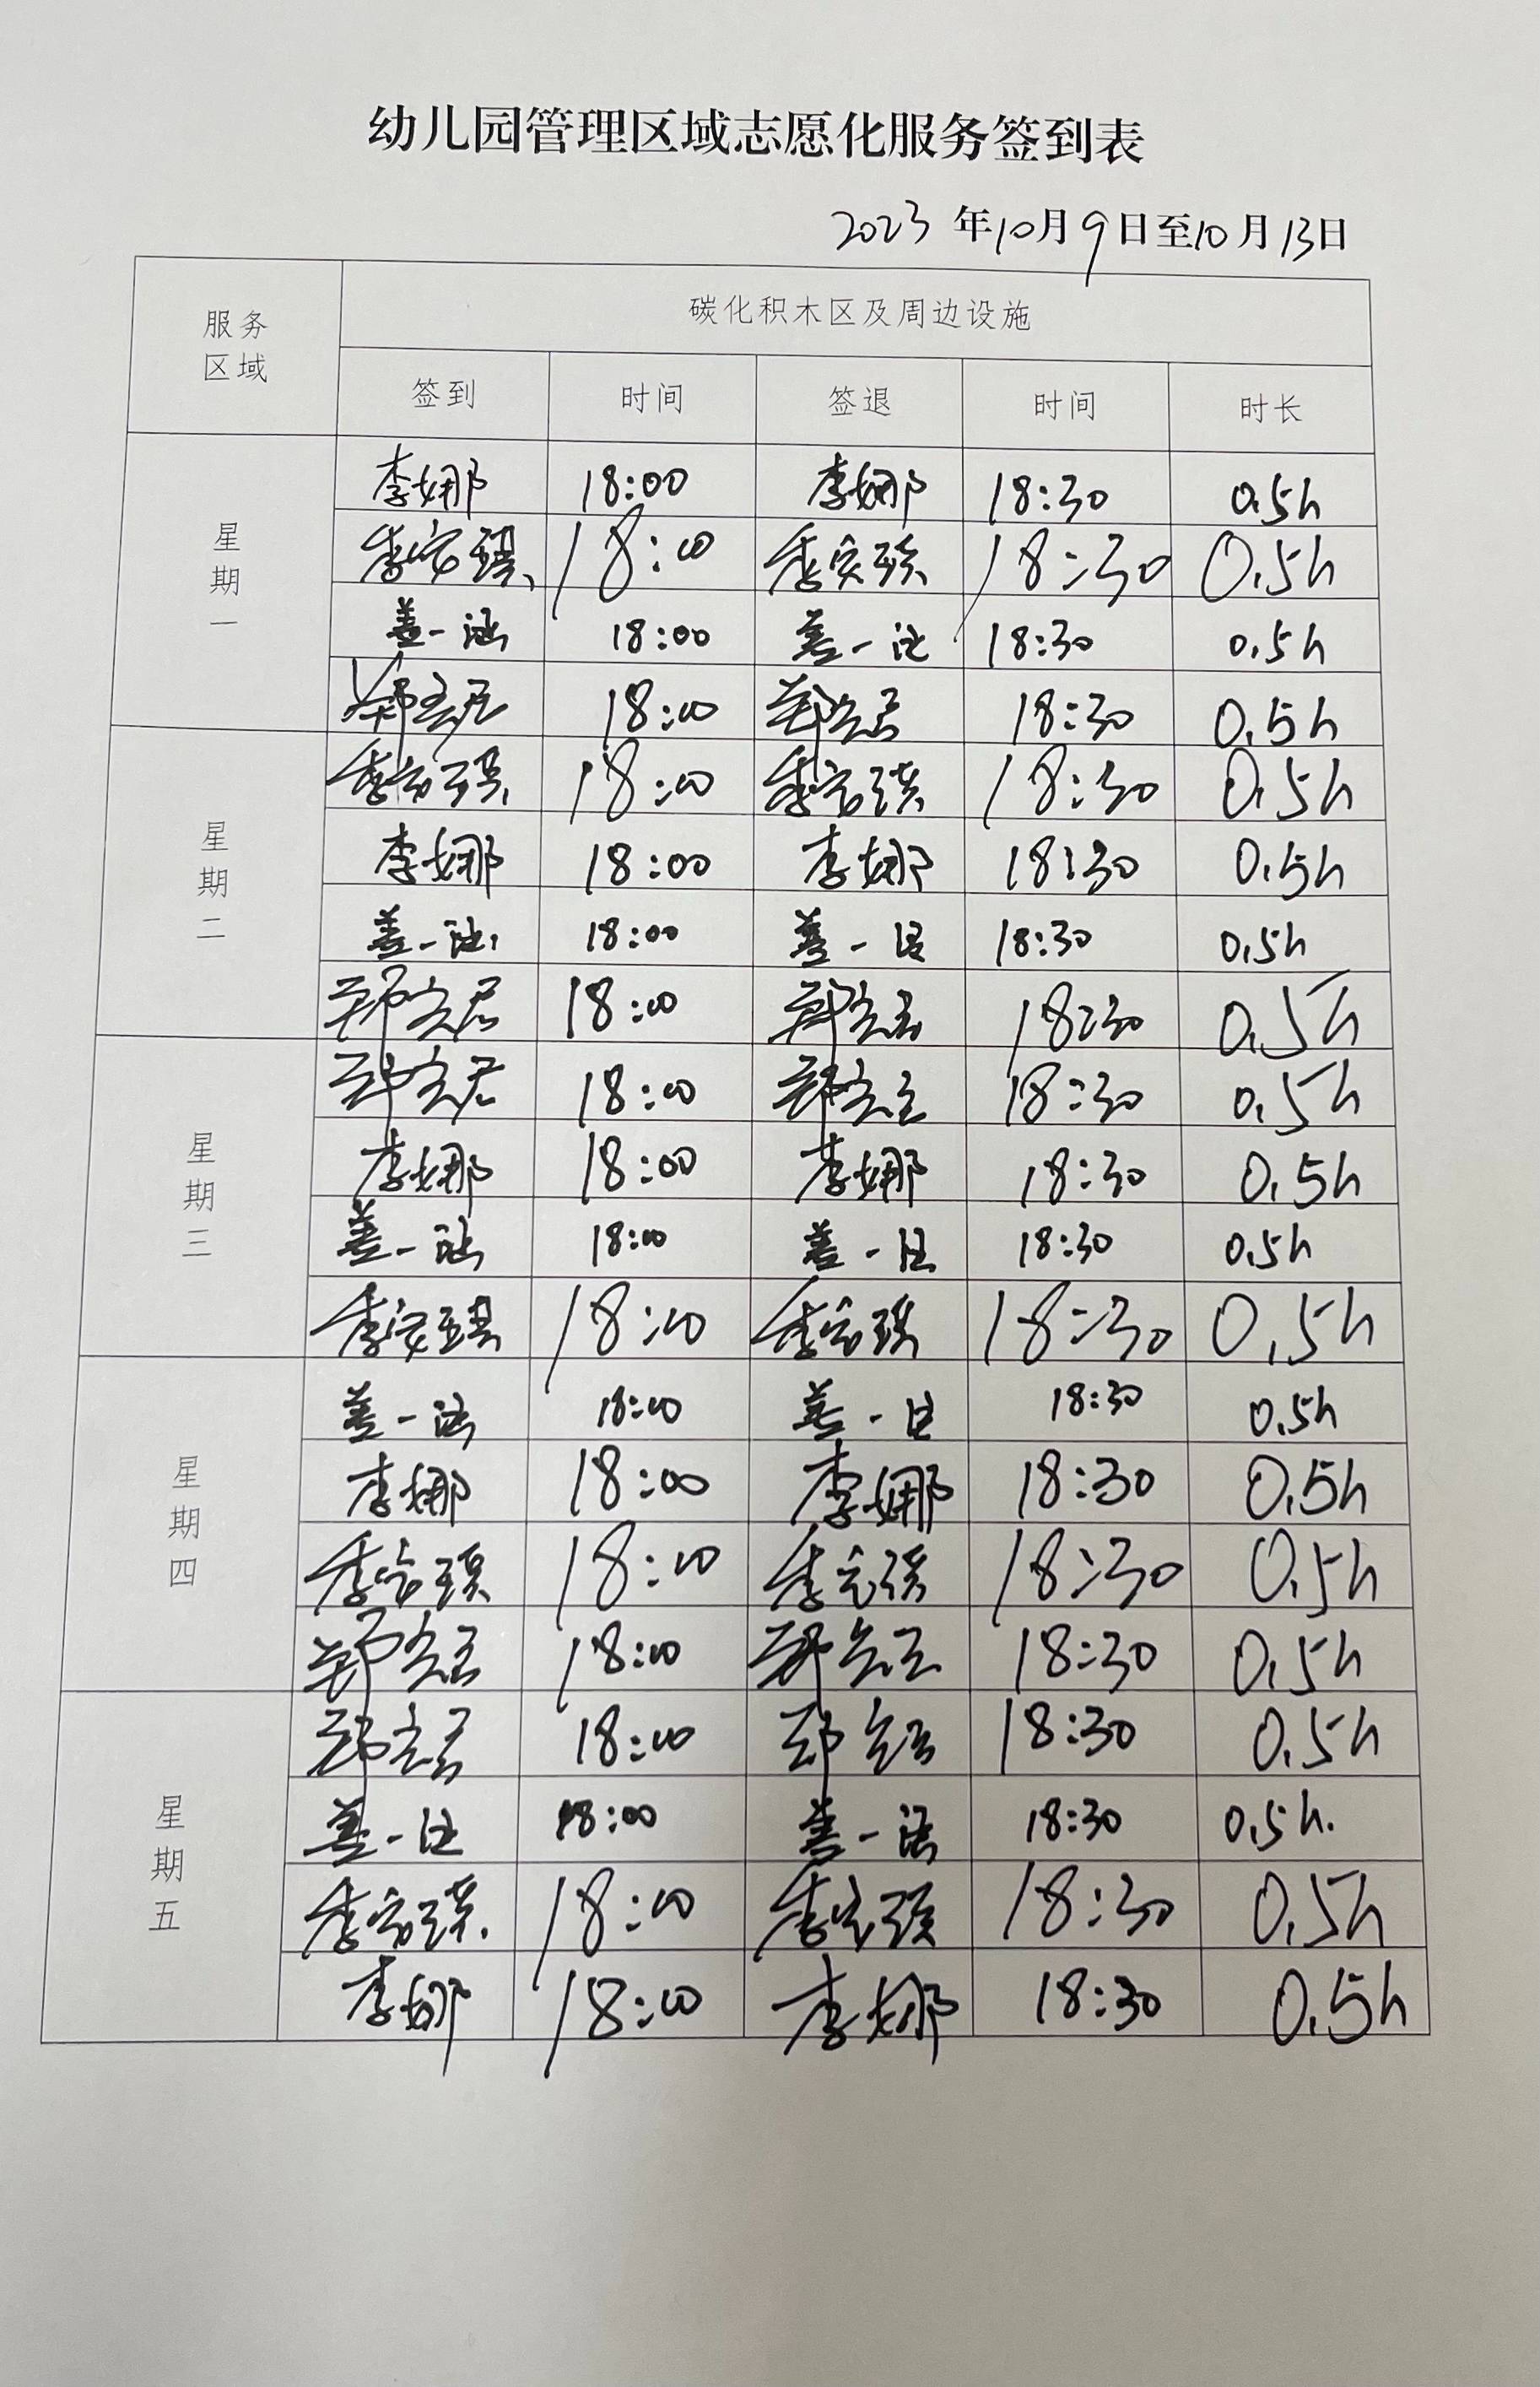 幼儿园管理区域志愿化服务签到表
2023年10月9日至10月13日
服务区域 碳化积木区及周边设施
签到 时间 签退 时间 时长
星期一
李娜 18:00 李娜 18:30 0.5h
季安琪 18:00 季安琪 18:30 0.5h
姜一涵 18:00 姜一涵 18:30 0.5h
郑 18:00 郑 18:30 0.5h
星期二
季安琪 18:00 季安琪 18:30 0.5h
李娜 18:00 李娜 18:30 0.5h
姜一涵 18:00 姜一涵 18:30 0.5h
郑 18:00 郑 18:30 0.5h
星期三
郑 18:00 郑 18:30 0.5h
李娜 18:00 李娜 18:30 0.5h
姜一涵 18:00 姜一涵 18:30 0.5h
季安琪 18:00 季安琪 18:30 0.5h
星期四
姜一涵 18:00 姜一涵 18:30 0.5h
李娜 18:00 李娜 18:30 0.5h
季安琪 18:00 季安琪 18:30 0.5h
郑 18:00 郑 18:30 0.5h
星期五
郑 18:00 郑 18:30 0.5h
姜一涵 18:00 姜一涵 18:30 0.5h.
季安琪 18:00 季安琪 18:30 0.5h
李娜 18:00 李娜 18:30 0.5h